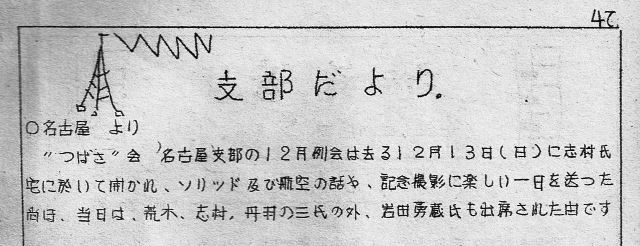 42
支部だより.
○名古屋 より
"つばさ"会 名古屋支部の12月例会は去る12月13日(日)に志村氏
宅に於いて開かれ、ソリッド及び航空の話や、記念撮影に楽しい一日を送った
尚ほ、当日は、荒木、志村、丹羽の三氏の外、岩田勇蔵氏も出席された由です